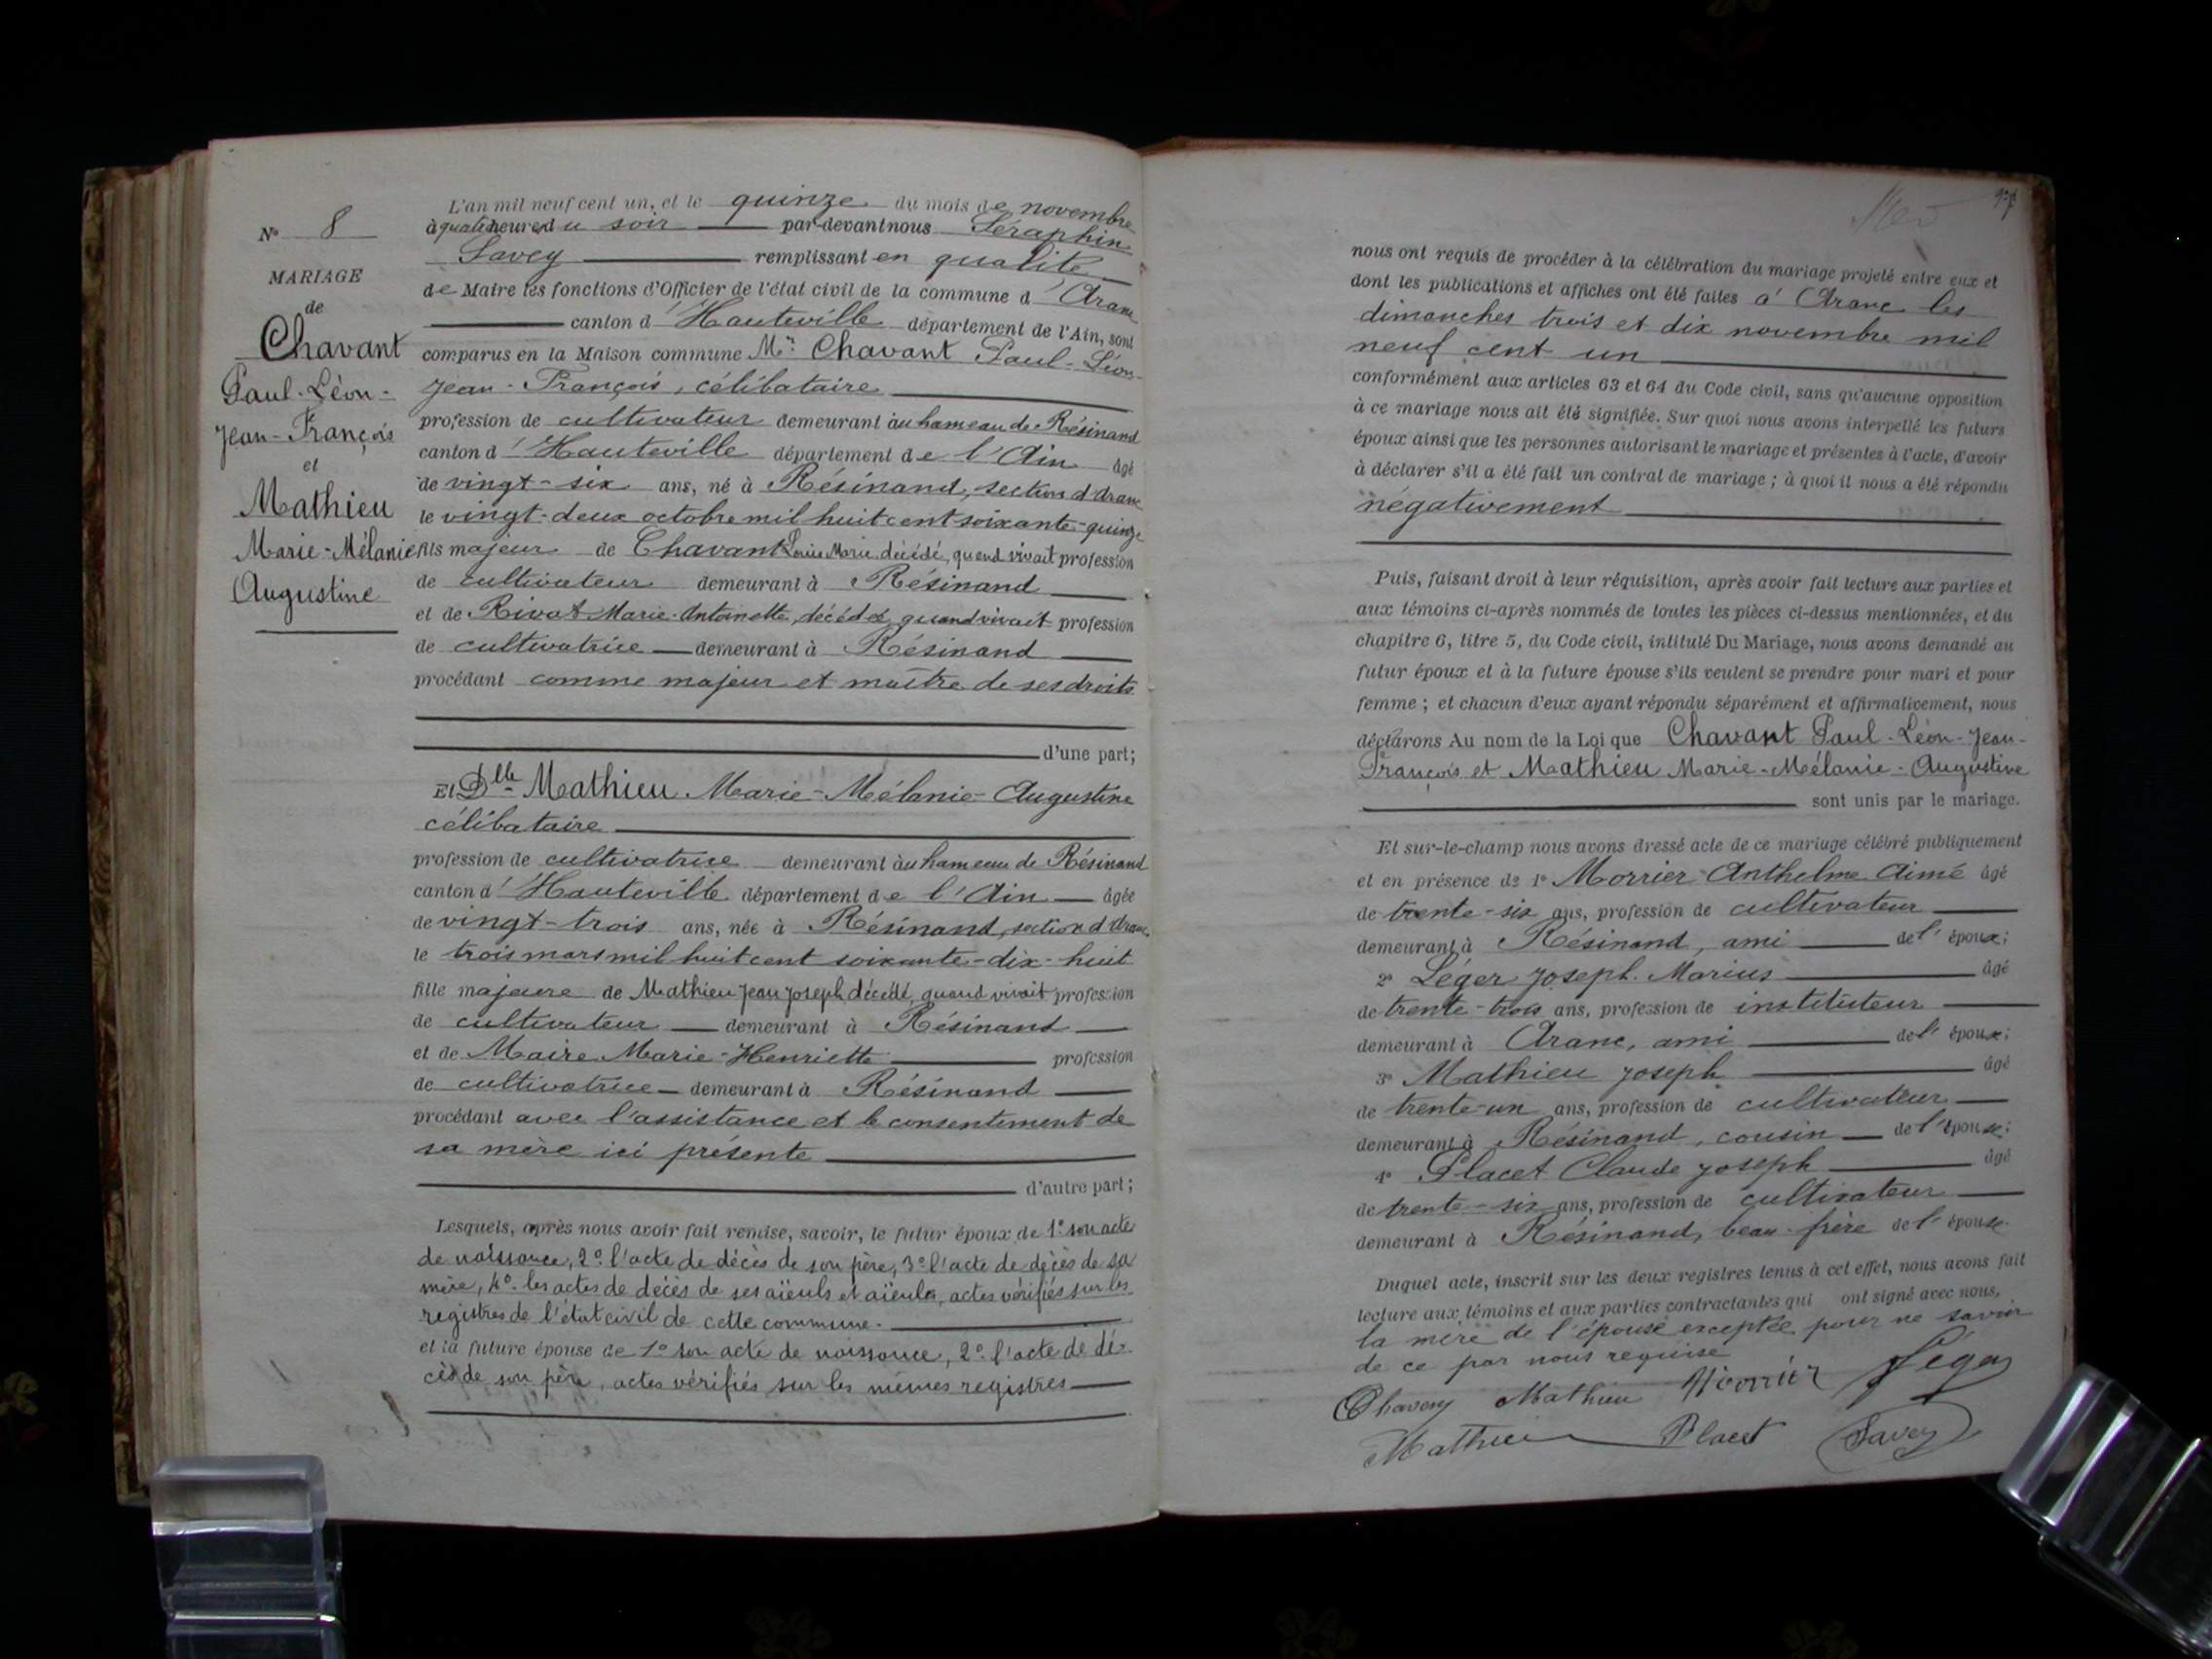 N° 8
MARIAGE
de
Chavant
Paul-Léon-
Jean-François
et
Mathieu
Marie-Mélanie
Augustine
L'an mil neuf cent un, et le quinze du mois de novembre
à quatre heures du soir par-devant nous Séraphin
Savey remplissant en qualité
de Maire les fonctions d'Officier de l'état civil de la commune d'Aranc
canton d'Hauteville département de l'Ain, sont
comparus en la Maison commune Mr Chavant Paul-Léon-
Jean-François, célibataire
profession de cultivateur demeurant au hameau de Résinand
canton d'Hauteville département de l'Ain âgé
de vingt-six ans, né à Résinand, section d'Aranc
le vingt-deux octobre mil huit cent soixante-quinze
fils majeur de Chavant Marie décédé, quand vivait profession
de cultivateur demeurant à Résinand
et de Rivat Marie-Antoinette, décédée, quand vivait profession
de cultivatrice demeurant à Résinand
procédant comme majeur et maître de ses droits
d'une part;
Et Dlle Mathieu Marie-Mélanie-Augustine
célibataire
profession de cultivatrice demeurant au hameau de Résinand
canton d'Hauteville département de l'Ain âgée
de vingt-trois ans, née à Résinand, section d'Aranc
le trois mars mil huit cent soixante-dix-huit
fille majeure de Mathieu Jean Joseph décédé, quand vivait profession
de cultivateur demeurant à Résinand
et de Maire Marie-Henriette profession
de cultivatrice demeurant à Résinand
procédant avec l'assistance et le consentement de
sa mère ici présente
d'autre part;
Lesquels, après nous avoir fait remise, savoir, le futur époux de 1° son acte
de naissance, 2° l'acte de décès de son père, 3° l'acte de décès de sa
mère, 4° les actes de décès de ses aïeuls et aïeules, actes vérifiés sur les
registres de l'état civil de cette commune.
et la future épouse de 1° son acte de naissance, 2° l'acte de dé-
cès de son père, actes vérifiés sur les mêmes registres
nous ont requis de procéder à la célébration du mariage projeté entre eux et
dont les publications et affiches ont été faites à Aranc les
dimanches trois et dix novembre mil
neuf cent un
conformément aux articles 63 et 64 du Code civil, sans qu'aucune opposition
à ce mariage nous ait été signifiée. Sur quoi nous avons interpellé les futurs
époux ainsi que les personnes autorisant le mariage et présentes à l'acte, d'avoir
à déclarer s'il a été fait un contrat de mariage; à quoi il nous a été répondu
négativement
Puis, faisant droit à leur réquisition, après avoir fait lecture aux parties et
aux témoins ci-après nommés de toutes les pièces ci-dessus mentionnées, et du
chapitre 6, titre 5, du Code civil, intitulé Du Mariage, nous avons demandé au
futur époux et à la future épouse s'ils veulent se prendre pour mari et pour
femme; et chacun d'eux ayant répondu séparément et affirmativement, nous
déclarons Au nom de la Loi que Chavant Paul-Léon-Jean-
François et Mathieu Marie-Mélanie-Augustine
sont unis par le mariage.
Et sur-le-champ nous avons dressé acte de ce mariage célébré publiquement
et en présence de 1° Morrier Anthelme Aimé âgé
de trente-six ans, profession de cultivateur
demeurant à Résinand, ami de l'époux;
2° Léger Joseph Marius âgé
de trente-trois ans, profession de instituteur
demeurant à Aranc, ami de l'époux;
3° Mathieu Joseph âgé
de trente-un ans, profession de cultivateur
demeurant à Résinand, cousin de l'épouse;
4° Placet Claude Joseph âgé
de trente-six ans, profession de cultivateur
demeurant à Résinand, beau-frère de l'épouse
Duquel acte, inscrit sur les deux registres tenus à cet effet, nous avons fait
lecture aux témoins et aux parties contractantes qui ont signé avec nous,
la mère de l'épouse exceptée pour ne savoir
de ce par nous requise
Mathieu Morrier Léger
Mathieu Placet Savey